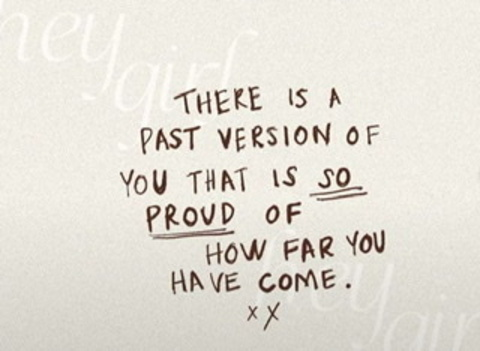 hey
girl
THERE IS A
PAST VERSION OF
YOU THAT IS SO
PROUD OF
HOW FAR YOU
HAVE COME.
xx
hey
girl